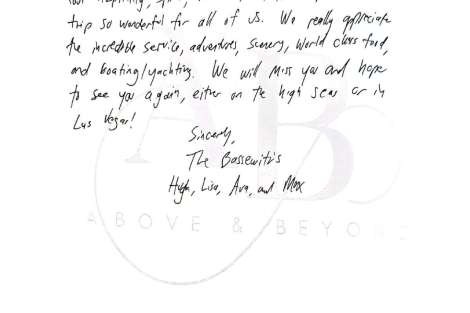 trip so wonderful for all of us. We really appreciate
the incredible service, adventures, scenery, world class food,
and boating/yachting. We will miss you and hope
to see you again, either on the high seas or in
Las Vegas!
Sincerely,
The Bassewitz's
Hugh, Lisa, Ava, and Max
AB
ABOVE & BEYOND